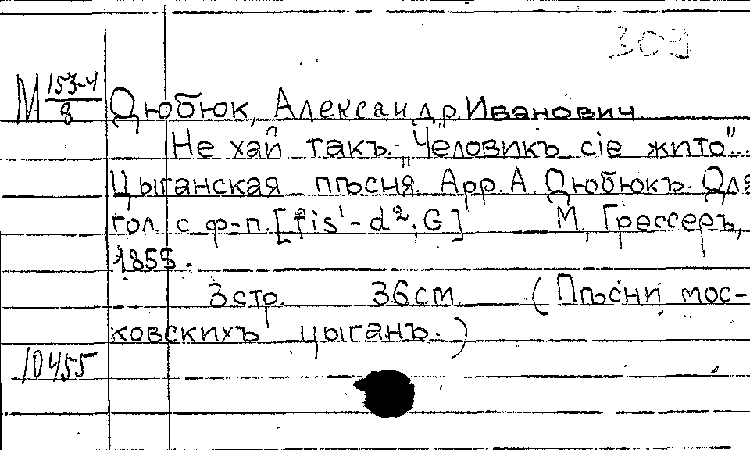 309
М 153-4/8 Дюбюк, Александр Иванович
Не хай такъ. "Человикъ сіе жито".
Цыганская пѣсня. Арр. А. Дюбюкъ. Для
гол. с ф-п. [fis¹-d², G] М, Грессеръ,
1855.
3 стр. 36 см. (Пѣсни мос-
ковскихъ цыганъ.)
10455